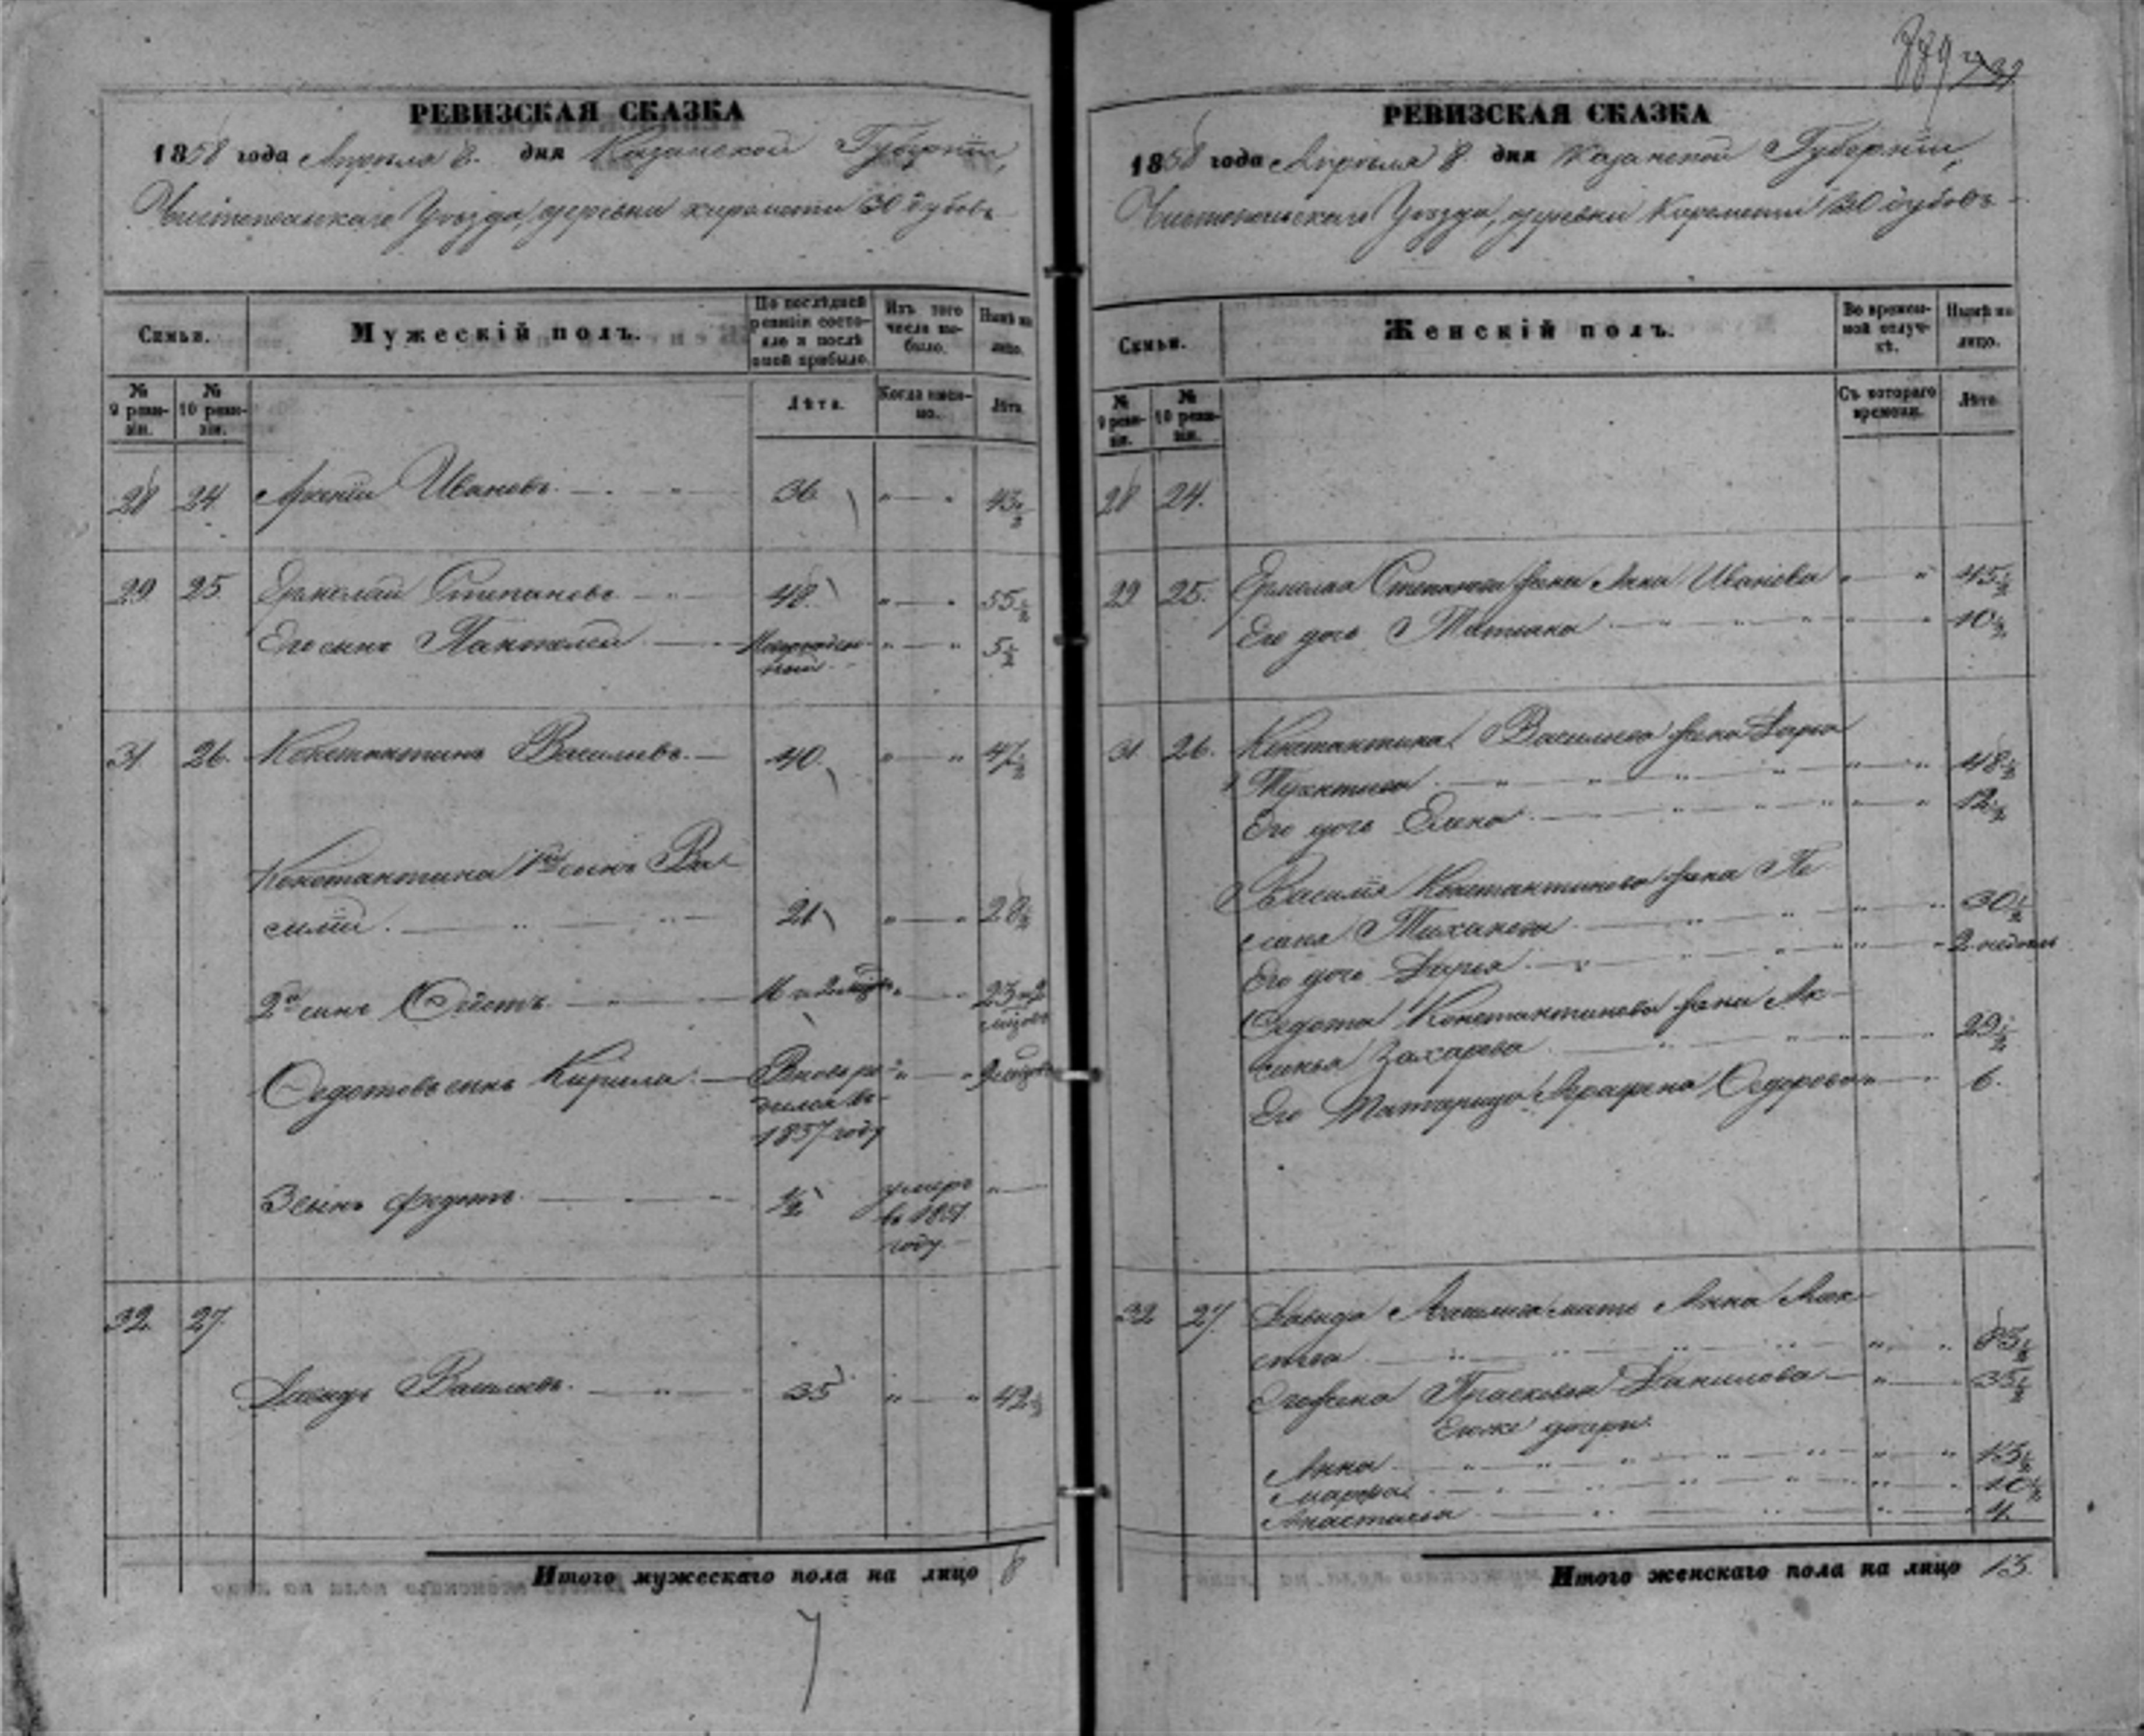 РЕВИЗСКАЯ СКАЗКА
1858 года Апрѣля 8. дня Казанской Губерніи,
Чистопольскаго Уѣзда, деревни Киремети 30 дубовъ
Семьи.
Мужескій полъ.
По послѣдней ревизіи состояло и послѣ оной прибыло.
Изъ того числа выбыло.
Нынѣ на лицо.
№ 9 ревизіи.
№ 10 ревизіи.
Лѣта.
Когда именно.
Лѣта
28 24 Иванова 36 43½
29 25 Ермолай Степановъ 48 55½
Его сынъ Пантелей Новорожденный 5½
31 26 Константинъ Васильевъ 40 47½
Константина 1й сынъ Ва-
силій 21 28½
2й сынъ
Федотовъ сынъ Кирила Вновь ро-
дился въ
1857 году
3 сынъ Федотъ ½ умеръ
въ 1851
году
32 27
Давидъ Васильевъ 35 42½
Итого мужескаго пола на лицо 8
7
889
РЕВИЗСКАЯ СКАЗКА
1858 года Апрѣля 8 дня Казанской Губерніи,
Чистопольскаго Уѣзда, деревни Киремети 30 дубовъ
Семьи.
Женскій полъ.
Во временной отлучкѣ.
Нынѣ на лицо.
№ 9 ревизіи.
№ 10 ревизіи.
Съ котораго времени.
Лѣта
28 24.
29 25. Ермолая Степанова жена Анна Иванова 45½
Его дочь Татьяна 10½
31 26. Константина Васильева жена Дарья
48½
Его дочь Елена 12½
Василія Константинова жена Пе-
лагея Тиханова 30½
Его дочь Дарья 2 недѣль
Федота Константинова жена Ак-
синья Захарова 29½
Его Аграфена Федорова 6.
32 27 Давида Васильева мать Анна Мак-
85½
Его жена Прасковья Данилова 35½
Ихже дочери
Анна 15½
Марфа 10½
Анастасья 4.
Итого женскаго пола на лицо 13.